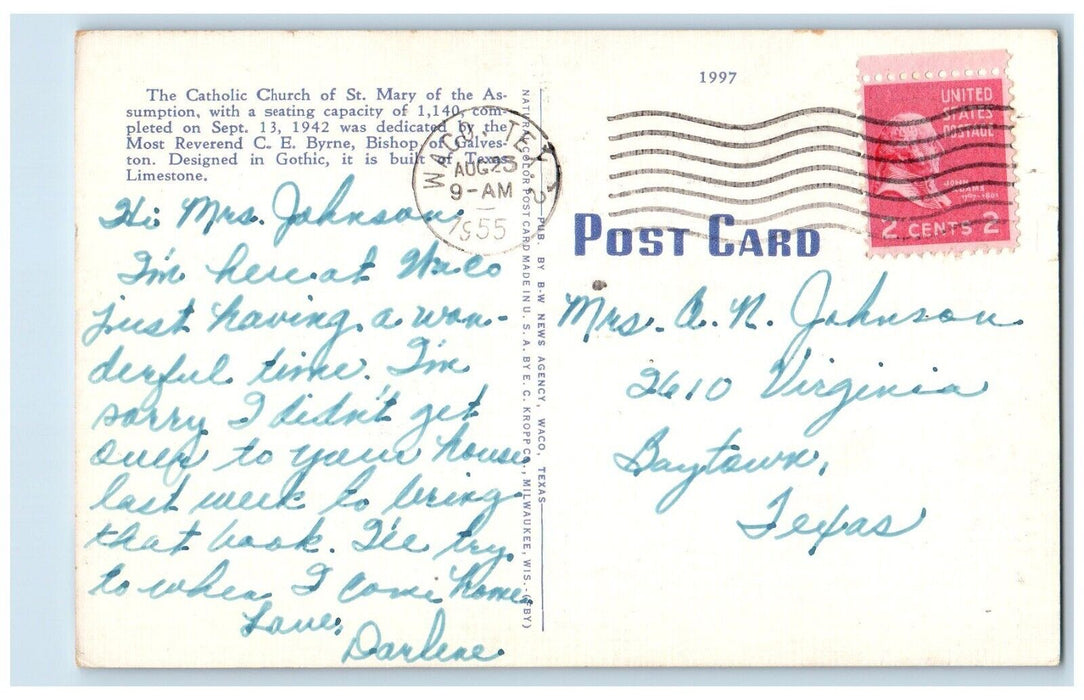 The Catholic Church of St. Mary of the As-
sumption, with a seating capacity of 1,140, com-
pleted on Sept. 13, 1942 was dedicated by the
Most Reverend C. E. Byrne, Bishop of Galves-
ton. Designed in Gothic, it is built of Texas
Limestone.
Hi Mrs. Johnson,
I'm here at Waco
just having a won-
derful time. I'm
sorry I didn't get
over to your house
last week to bring
that book. I'll try
to when I come home.
Love,
Darlene
NATURAL COLOR POST CARD MADE IN U. S. A. BY E. C. KROPP CO., MILWAUKEE, WIS.
PUB. BY B-W NEWS AGENCY, WACO, TEXAS
WACO, TEX.
AUG 23
9-AM
1955
1997
UNITED
STATES
POSTAGE
JOHN
ADAMS
2 CENTS 2
POST CARD
Mrs. A. N. Johnson
2610 Virginia
Baytown,
Texas